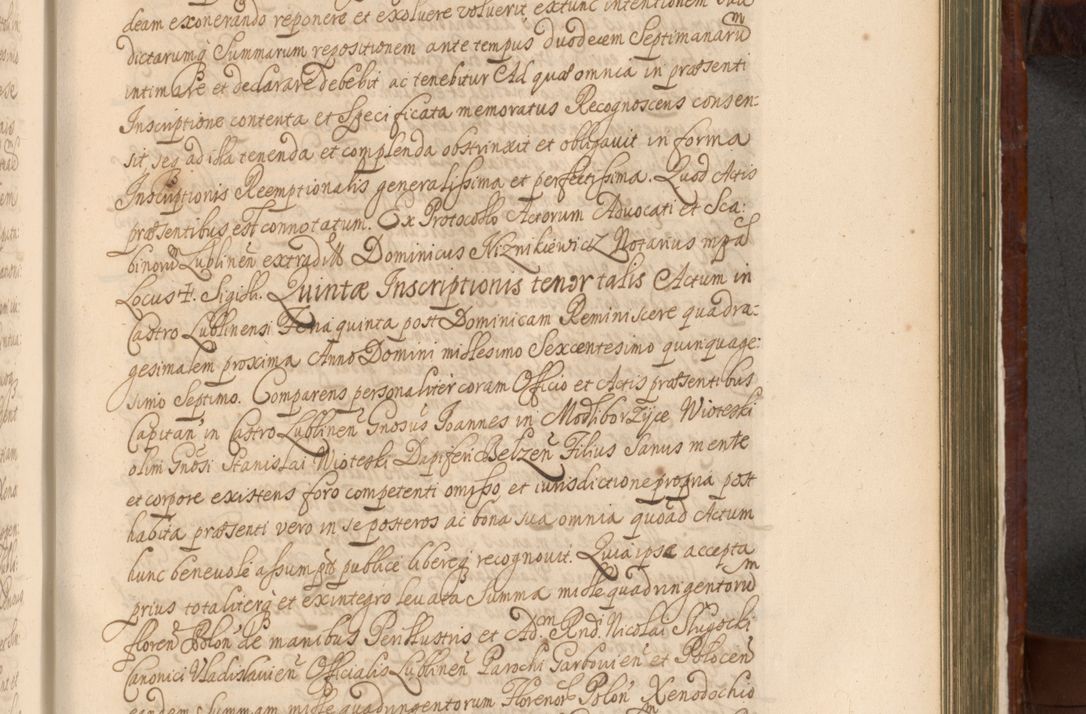 deam exonerando reponere et exoluere voluerit extunc intentionem
dictarumq Summarum repositionem ante tempus duodecem Septimanarum
intimare et declarare debebit ac tenebitur Ad quæ omnia in præsenti
Inscriptione contenta et specificata memoratus Recognoscens consen-
sit seq ad illa tenenda et complenda obstrinxit et obligauit in forma
Inscriptionis Reemptionalis generalissima et perfectissima. Quod Actis
præsentibus est connotatum. Ex Protocollo Actorum Aduocati et Sca-
binorũ Lublineñ extradit Dominicus Niznikiewicz Notarius mpa
Locus Sigilli. Quintæ Inscriptionis tenor talis Actum in
Castro Lublinensi Feria quinta post Dominicam Reminiscere quadra-
gesimalem proxima Anno Domini millesimo Sexcentesimo quinquage-
simo Septimo. Comparens personaliter coram Officio et Actis præsentibus
Capitan in Castro Lublineñ Gnosus Ioannes in Modliborzyce Wioteski
olim Gnosi Stanislai Wioteski Dapiferi Belzeñ Filius Sanus mente
et corpore existens foro competenti omisso, et iurisdictione propria post
habita præsenti vero in se posteros ac bona sua omnia quoad Actum
hunc benevole assumpto publice libereq recognouit. Quia ipse accepta
prius totaliterq et exintegro leuata Summa mille quadringentorũ
floreñ Polon de manibus Perillustris et Adm Rndi Nicolai Sługocki
Canonici Vladislavieñ Officialis Lublineñ Parochi Garbovieñ et
eandem Summam mille quadringentorum Florenor Polon Xenodochio